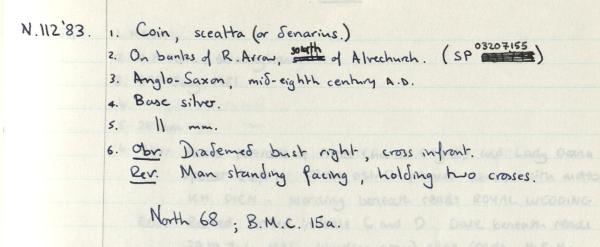 N.112'83. 1. Coin, sceatta (or denarius.)
2. On banks of R. Arrow, south of Alvechurch. (SP 03207155)
3. Anglo-Saxon, mid-eighth century A.D.
4. Base silver.
5. 11 mm.
6. Obv. Diademed bust right, cross infront.
Rev. Man standing facing, holding two crosses.
North 68; B.M.C. 15a.